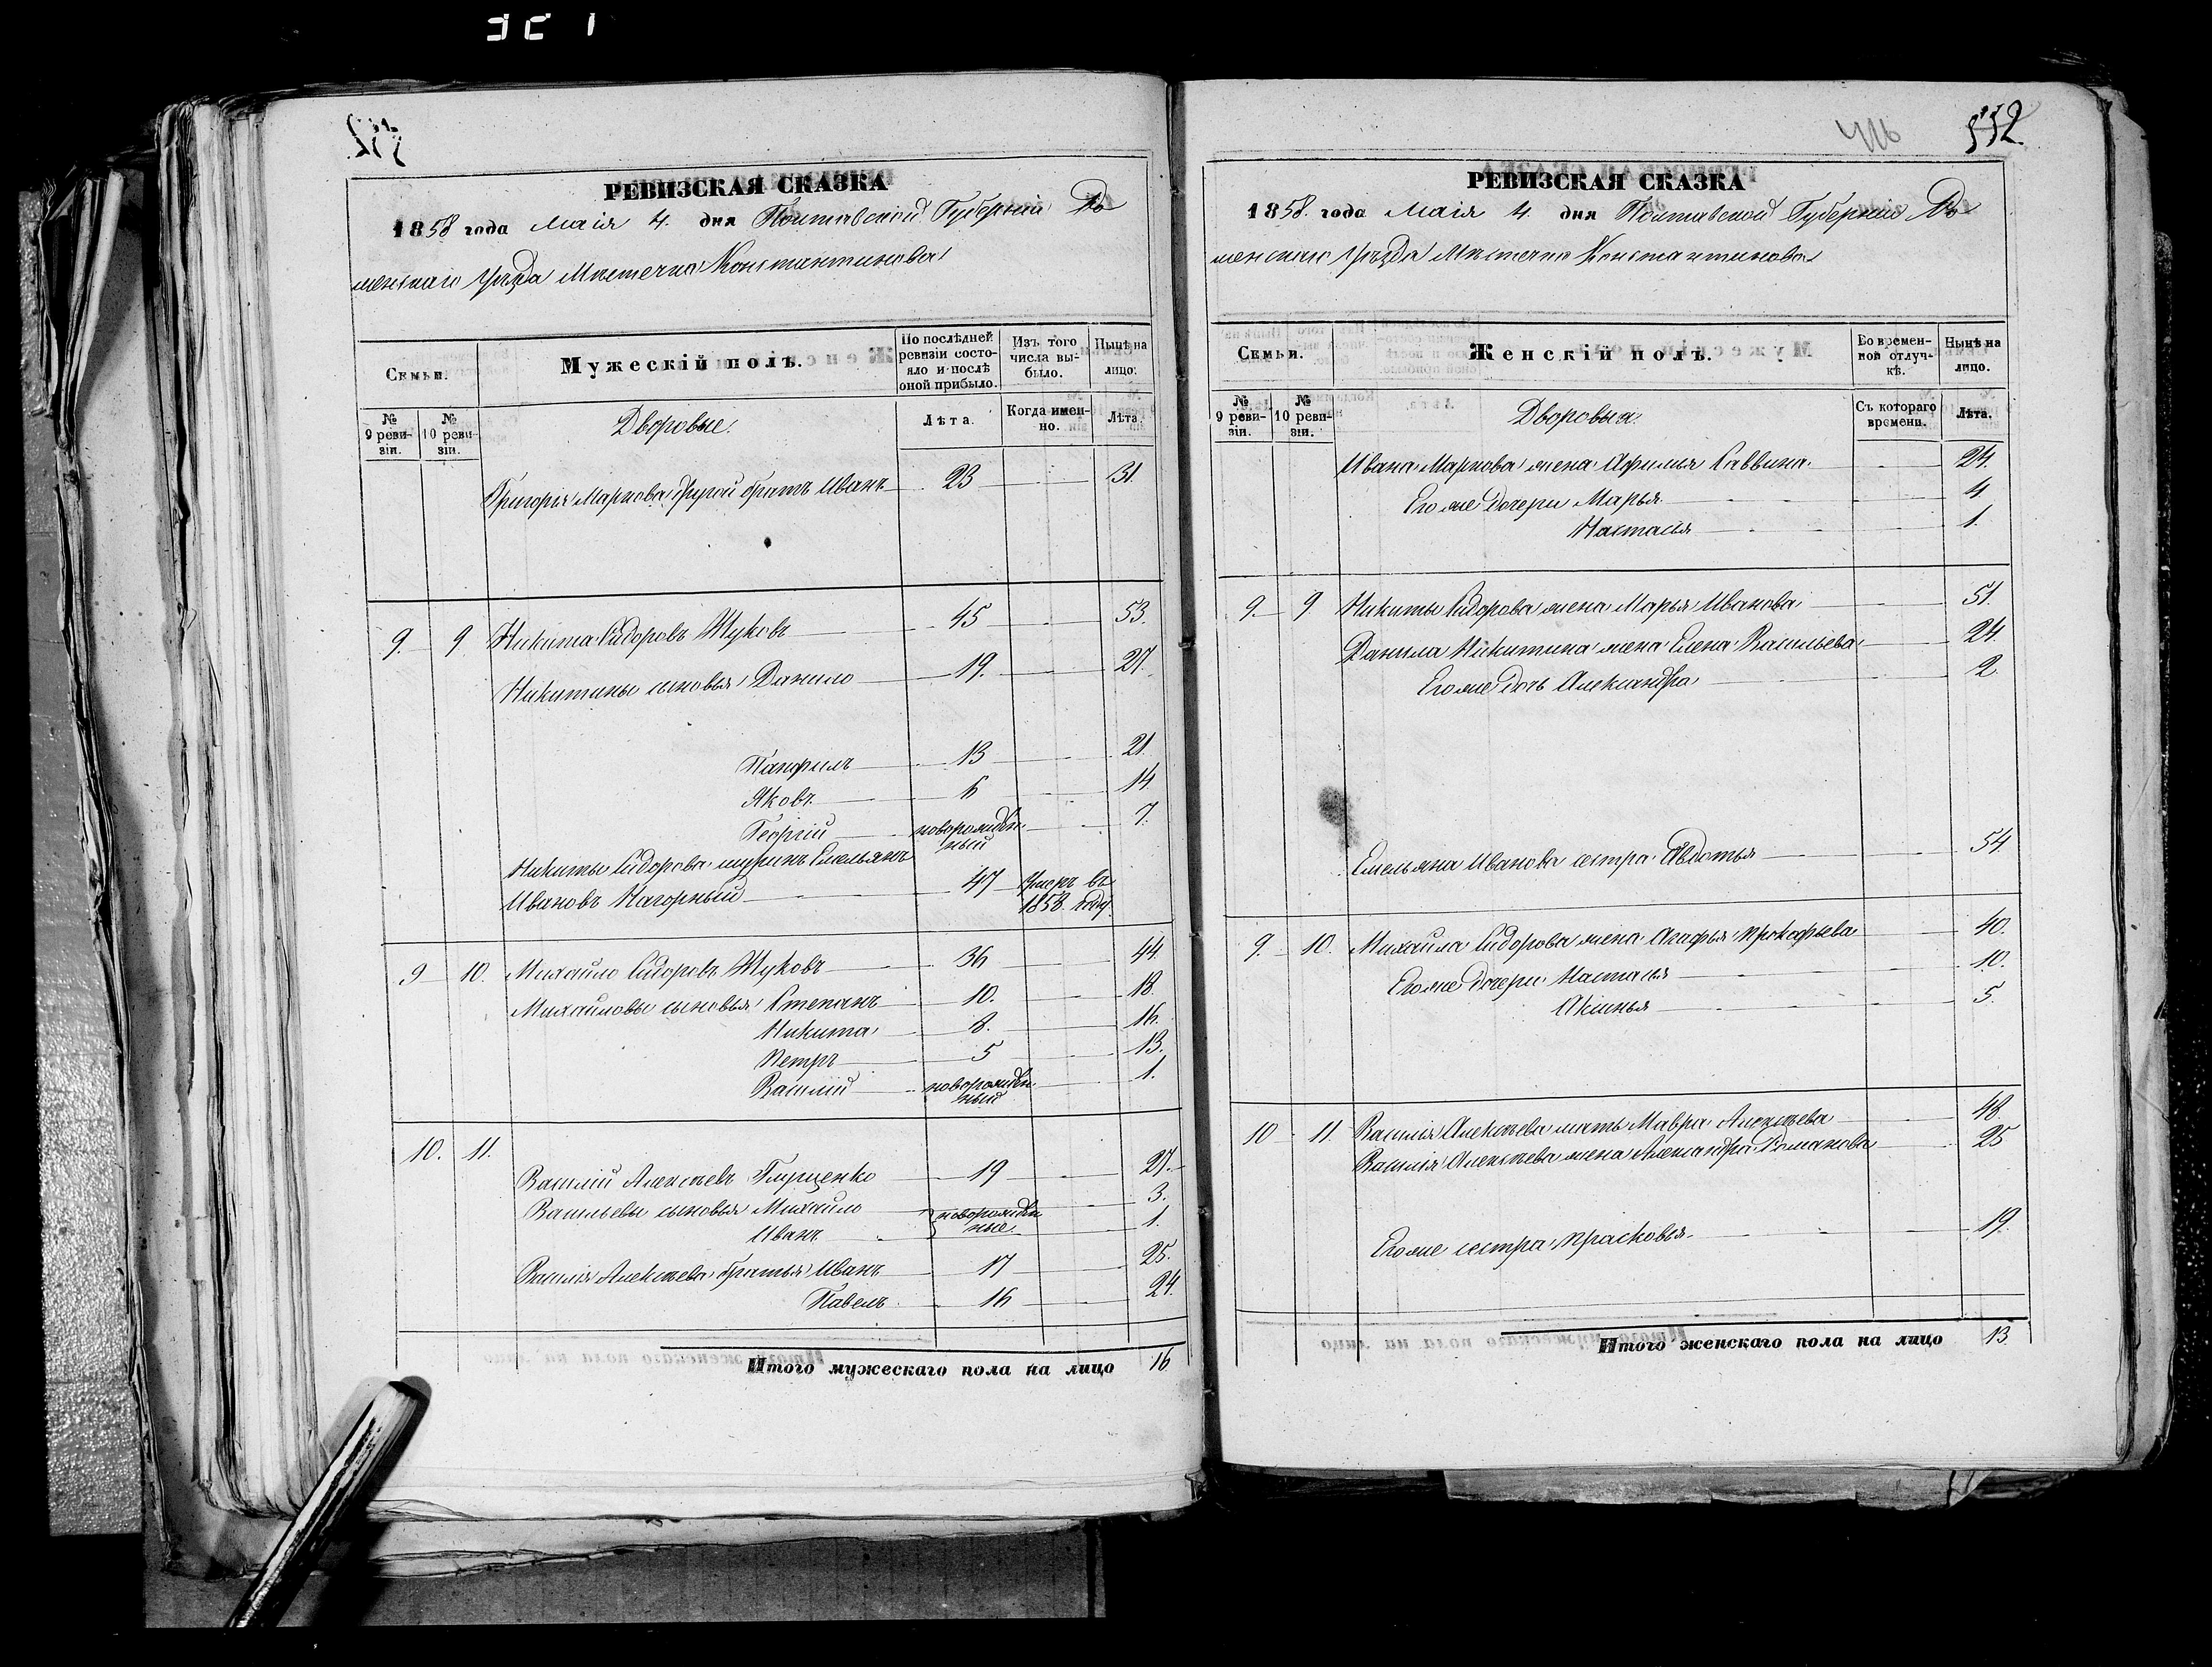 552.
РЕВИЗСКАЯ СКАЗКА
1858 года Маія 4. дня Полтавской Губерніи Ро
менскаго Уѣзда Мѣстечка Константинова
Семьи.
Мужескій полъ.
По послѣдней ревизіи состояло и послѣ оной прибыло.
Изъ того числа выбыло.
Нынѣ на лицо.
№ 9 ревизіи.
№ 10 ревизіи.
Дворовые.
Лѣта.
Когда именно.
Лѣта.
Григорія Маркова другой братъ Иванъ 23 31.
9. 9 Никита Сидоровъ Жуковъ 45 53.
Никитины сыновья Данило 19. 27.
Панфилъ 13 21.
Яковъ 6 14.
Георгій новорожден
ный 7.
Никиты Сидорова шуринъ Емельянъ
Ивановъ Нагорный 47 Умеръ въ
1858. году.
9 10. Михайло Сидоровъ Жуковъ 36 44.
Михайловы сыновья Степанъ 10. 18.
Никита 8. 16.
Петръ 5 13.
Василій новорожден
ный 1.
10. 11.
Василій Алексѣевъ Глущенко 19 27.
Васильевы сыновья Михайло новорожден 3.
Иванъ ные 1.
Василія Алексѣева братья Иванъ 17 25.
Павелъ 16 24.
Итого мужескаго пола на лицо 16
416 552.
РЕВИЗСКАЯ СКАЗКА
1858. года Маія 4. дня Полтавской Губерніи Ро
менскаго Уѣзда Мѣстечка Константинова
Семьи.
Женскій полъ.
Во временной отлучкѣ.
Нынѣ на лицо.
№ 9 ревизіи.
№ 10 ревизіи.
Дворовыя.
Съ котораго времени.
Лѣта.
Ивана Маркова жена Афимья Саввина 24.
Его же дочери Марья 4
Настасья 1.
9. 9 Никиты Сидорова жена Марья Иванова 51.
Данила Никитина жена Елена Васильева 24.
Его же дочь Александра 2
Емельяна Иванова сестра Авдотья 54
9. 10. Михайла Сидорова жена Агафья Прокофьева 40.
Его же дочери Настасья 10.
Аксинья 5.
10 11. Василія Алексѣева мать Мавра Алексѣева 48.
Василія Алексѣева жена Александра Романова 25
Его же сестра Прасковья 19.
Итого женскаго пола на лицо 13